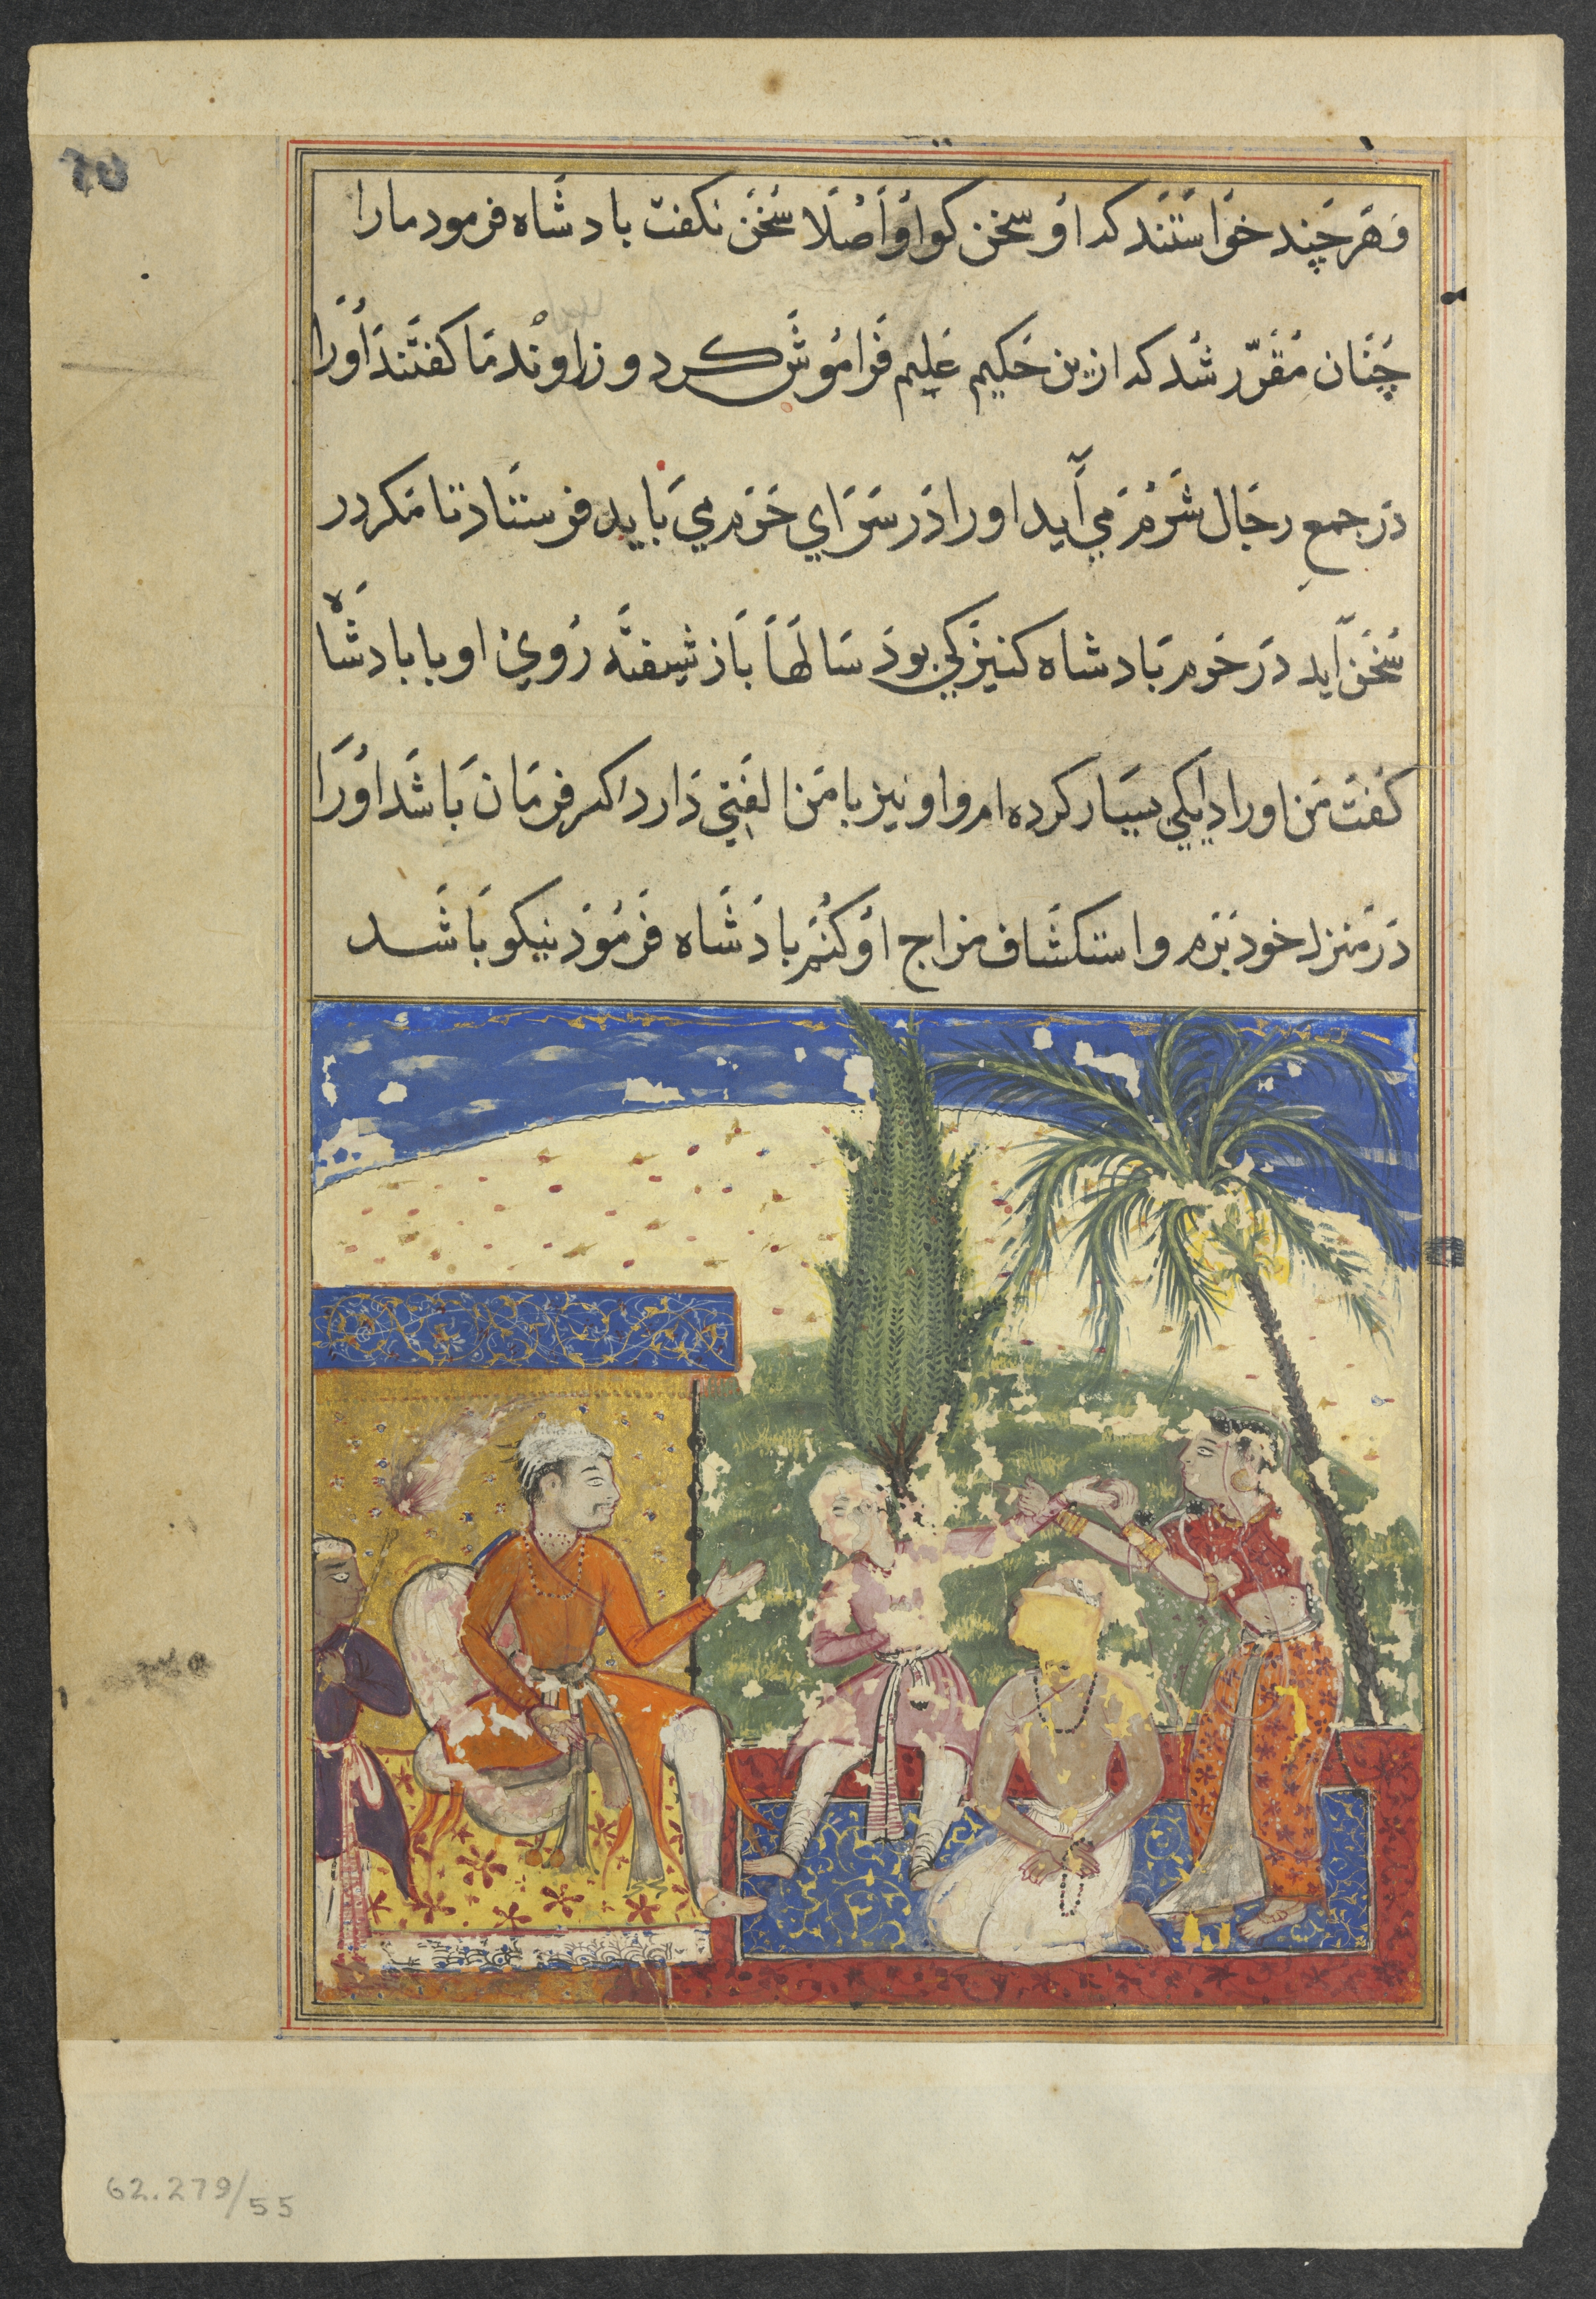 وَهَرچَند خوَاستَند که اوُ سخن کو اوُ اَصْلَا سَخُن نکفت بادشَاه فرمود مارا
چَنَان مُقَرّر شُد که ازین حَکیم عَلیم فَرامُوش کرد وزرا وُنُدمَا کفتَند اُورَا
دَر جمعِ رجَال شَرم مَی آید او را دَر سَرَاي حَرَم مي بَاید فرستَاد تا مَکر در
سُخَن آید دَر حَرم بَادشاه کنیزکي بوذ سَالهَا بَاز شیفتَه رُويِ او با بادشَاه
کُفت مَن او را دایکي بسیَار کرده ام و او نیز با مَن الفتي دَارد اکر فرمَان بَاشَد اوُرَا
دَر مَنزل خود بَرم و استکشَاف مزاج اوُ کنُم بادَشَاه فَرمُوذ نیکو بَاشَد
62.279/55